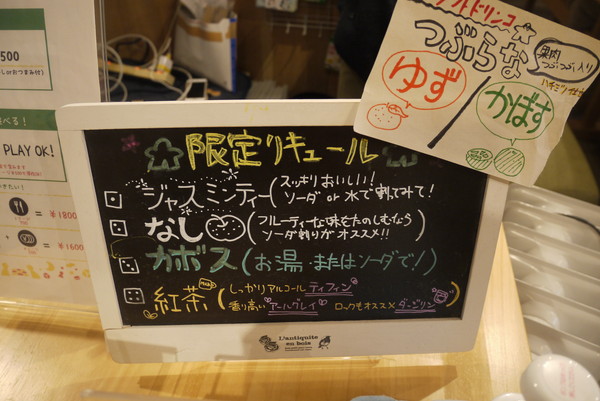 ソフトドリンコ
つぶらな
果肉
つぶつぶ入り
ゆず
かぼす
500
PLAY OK!
¥1800
限定リキュール
ジャスミンティー(スッキリおいしい!
ソーダ or 水で割ってみて!
なし(フルーティーな味をたのしむなら
ソーダ割りがオススメ!!)
カボス(お湯・またはソーダで!)
紅茶(しっかりアルコール ティフィン
香り高い アールグレイ ロックもオススメ ダージリン)
L'antiquite
en bois